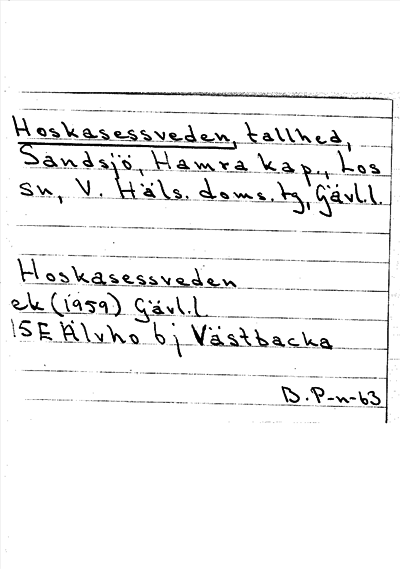 Hoskasessveden, tallhed,
Sandsjö, Hamra kap., Los
sn, V. Häls. doms. tg, Gävl.l.
Hoskasessveden
ek (1959) Gävl.l
15E Älvho 6j Västbacka
B. P-n-63